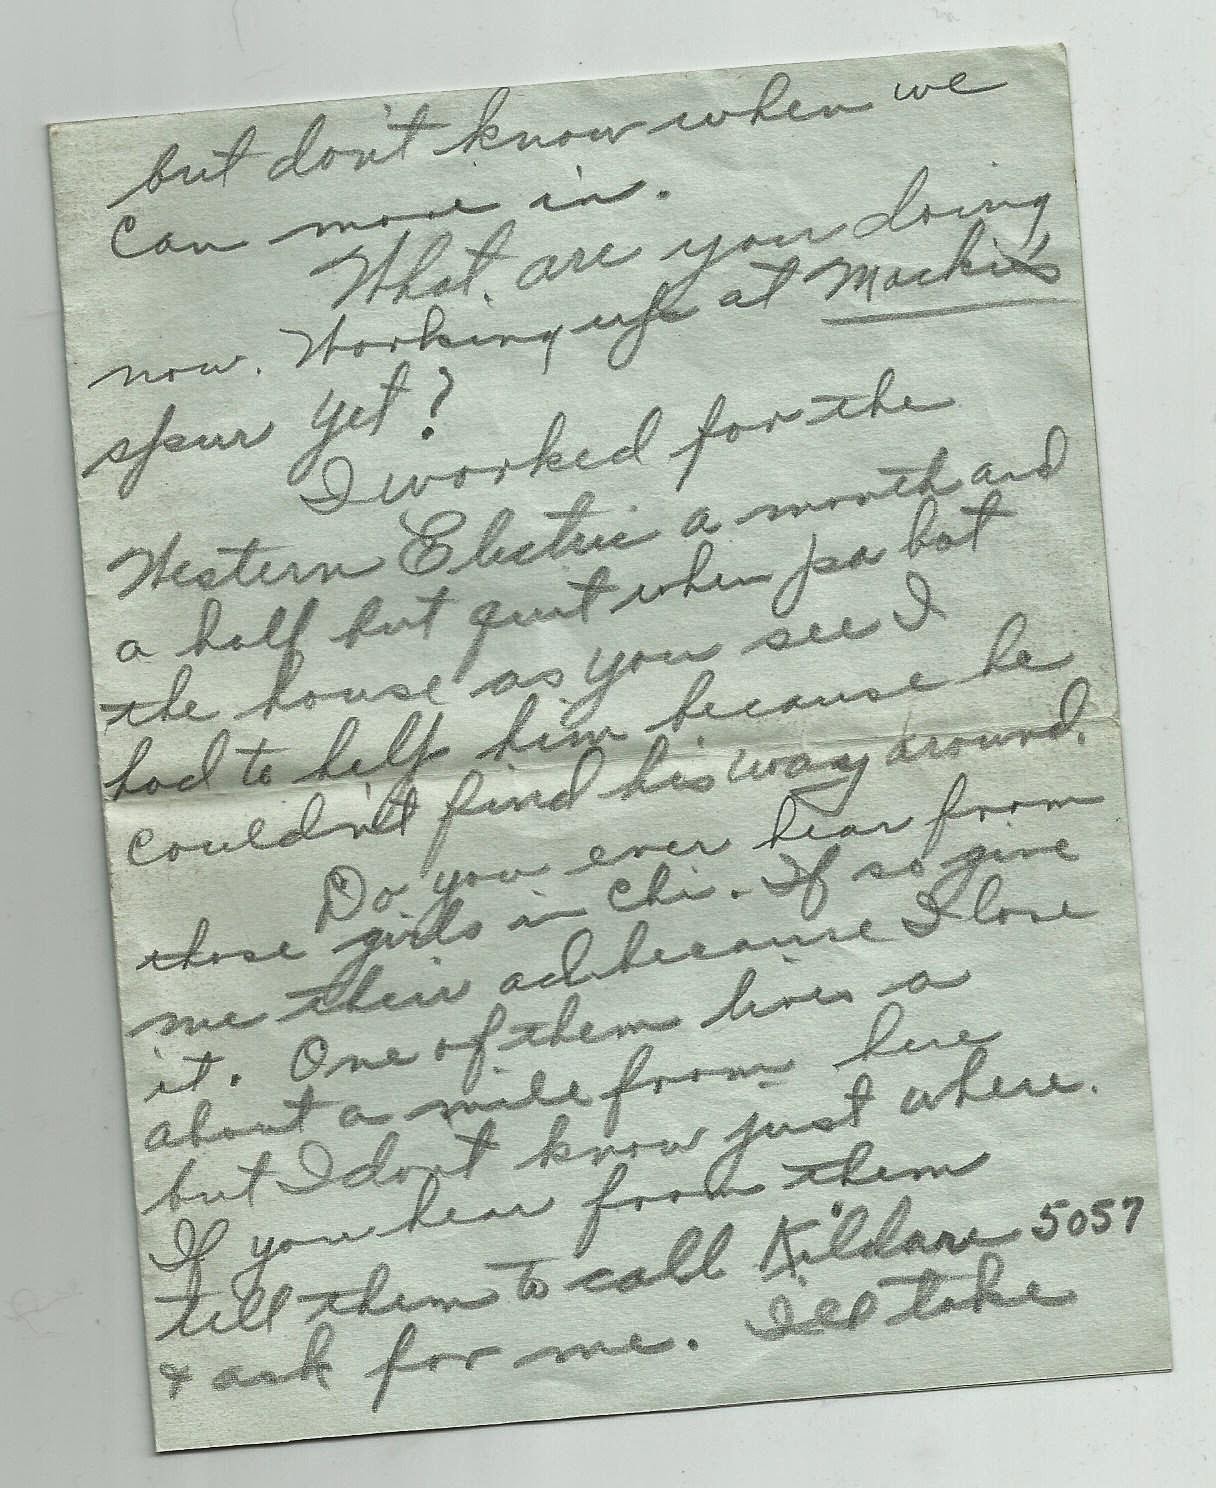 but don't know when we
can move in.
What are you doing
now. Working up at Mackies
spur yet?
I worked for the
Western Electric a month and
a half but quit when pa bot
the house as you see I
had to help him because he
couldn't find his way around.
Do you ever hear from
those girls in Chi. If so give
me their ad because I lose
it. One of them lives a
about a mile from here
but I dont know just where.
If you hear from them
tell them to call Kildare 5057
& ask for me. I'll take